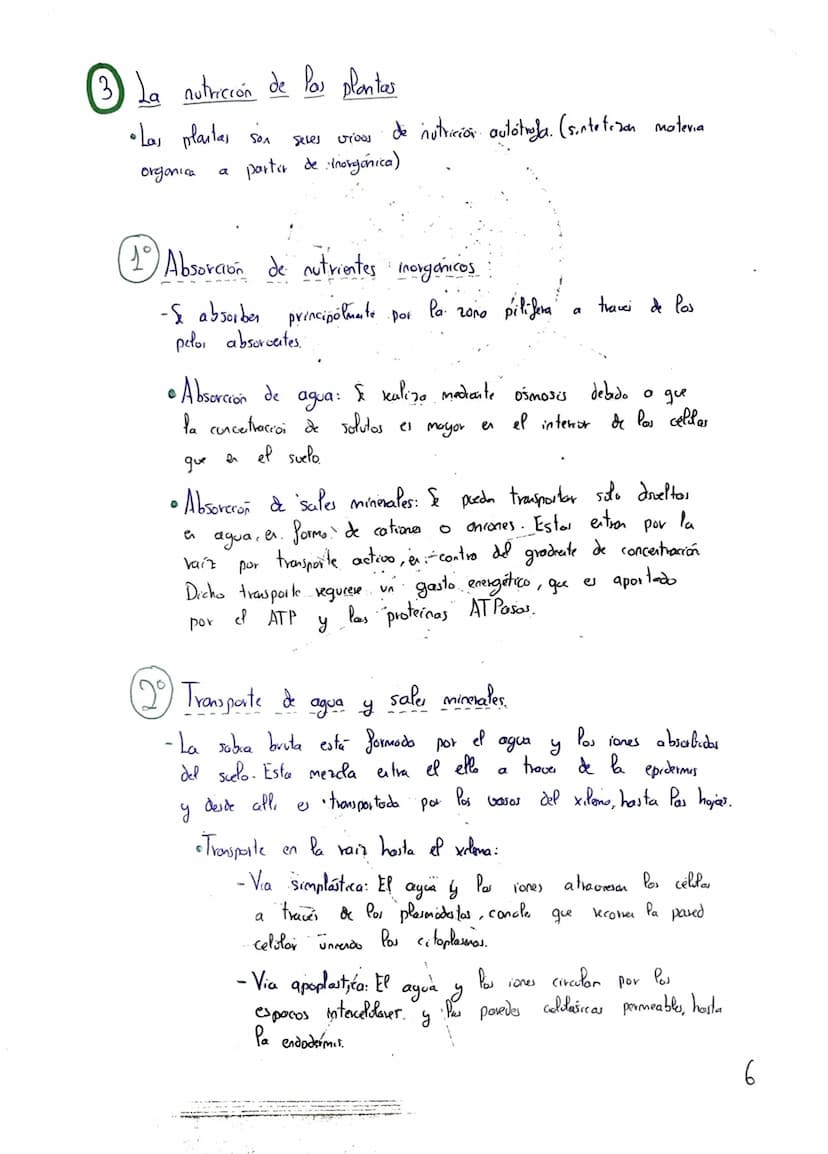 3 La nutrición de las plantas
• Las plantas son seres vivos de nutrición autótrofa. (sintetizan materia
organica a partir de inorgánica)
1º Absorción de nutrientes inorgánicos:
- Se absorben principalmente por la zona pilifera a través de los
pelos absorventes.
• Absorción de agua: Se realiza mediante ósmosis debido a que
la concentración de solutos es mayor en el interior de las células
que en el suelo.
• Absorción de sales minerales: Se pueden transportar solo disueltos
en agua, en forma de cationes o aniones. Estas entran por la
raíz por transporte activo, en contra del gradiente de concentración
Dicho transporte requiere un gasto energético, que es aportado
por el ATP y las proteínas ATPasas.
2º Transporte de agua y sales minerales.
- La sabia bruta está formado por el agua y los iones absorbidos
del suelo. Esta mezcla entra el ello a traves de la epidermis
y desde allí es transportada por los vasos del xilema, hasta las hojas.
• Transporte en la raiz hasta el xilema:
- Via simplástica: El agua y los iones atraviesan las células
a través de los plasmodestos, canales que recorren la pared
celular uniendo los citoplasmas.
- Via apoplastica: El agua y los iones circulan por los
espacios intercelulares y las paredes celulósicas permeables, hasta
la endodermis.
6